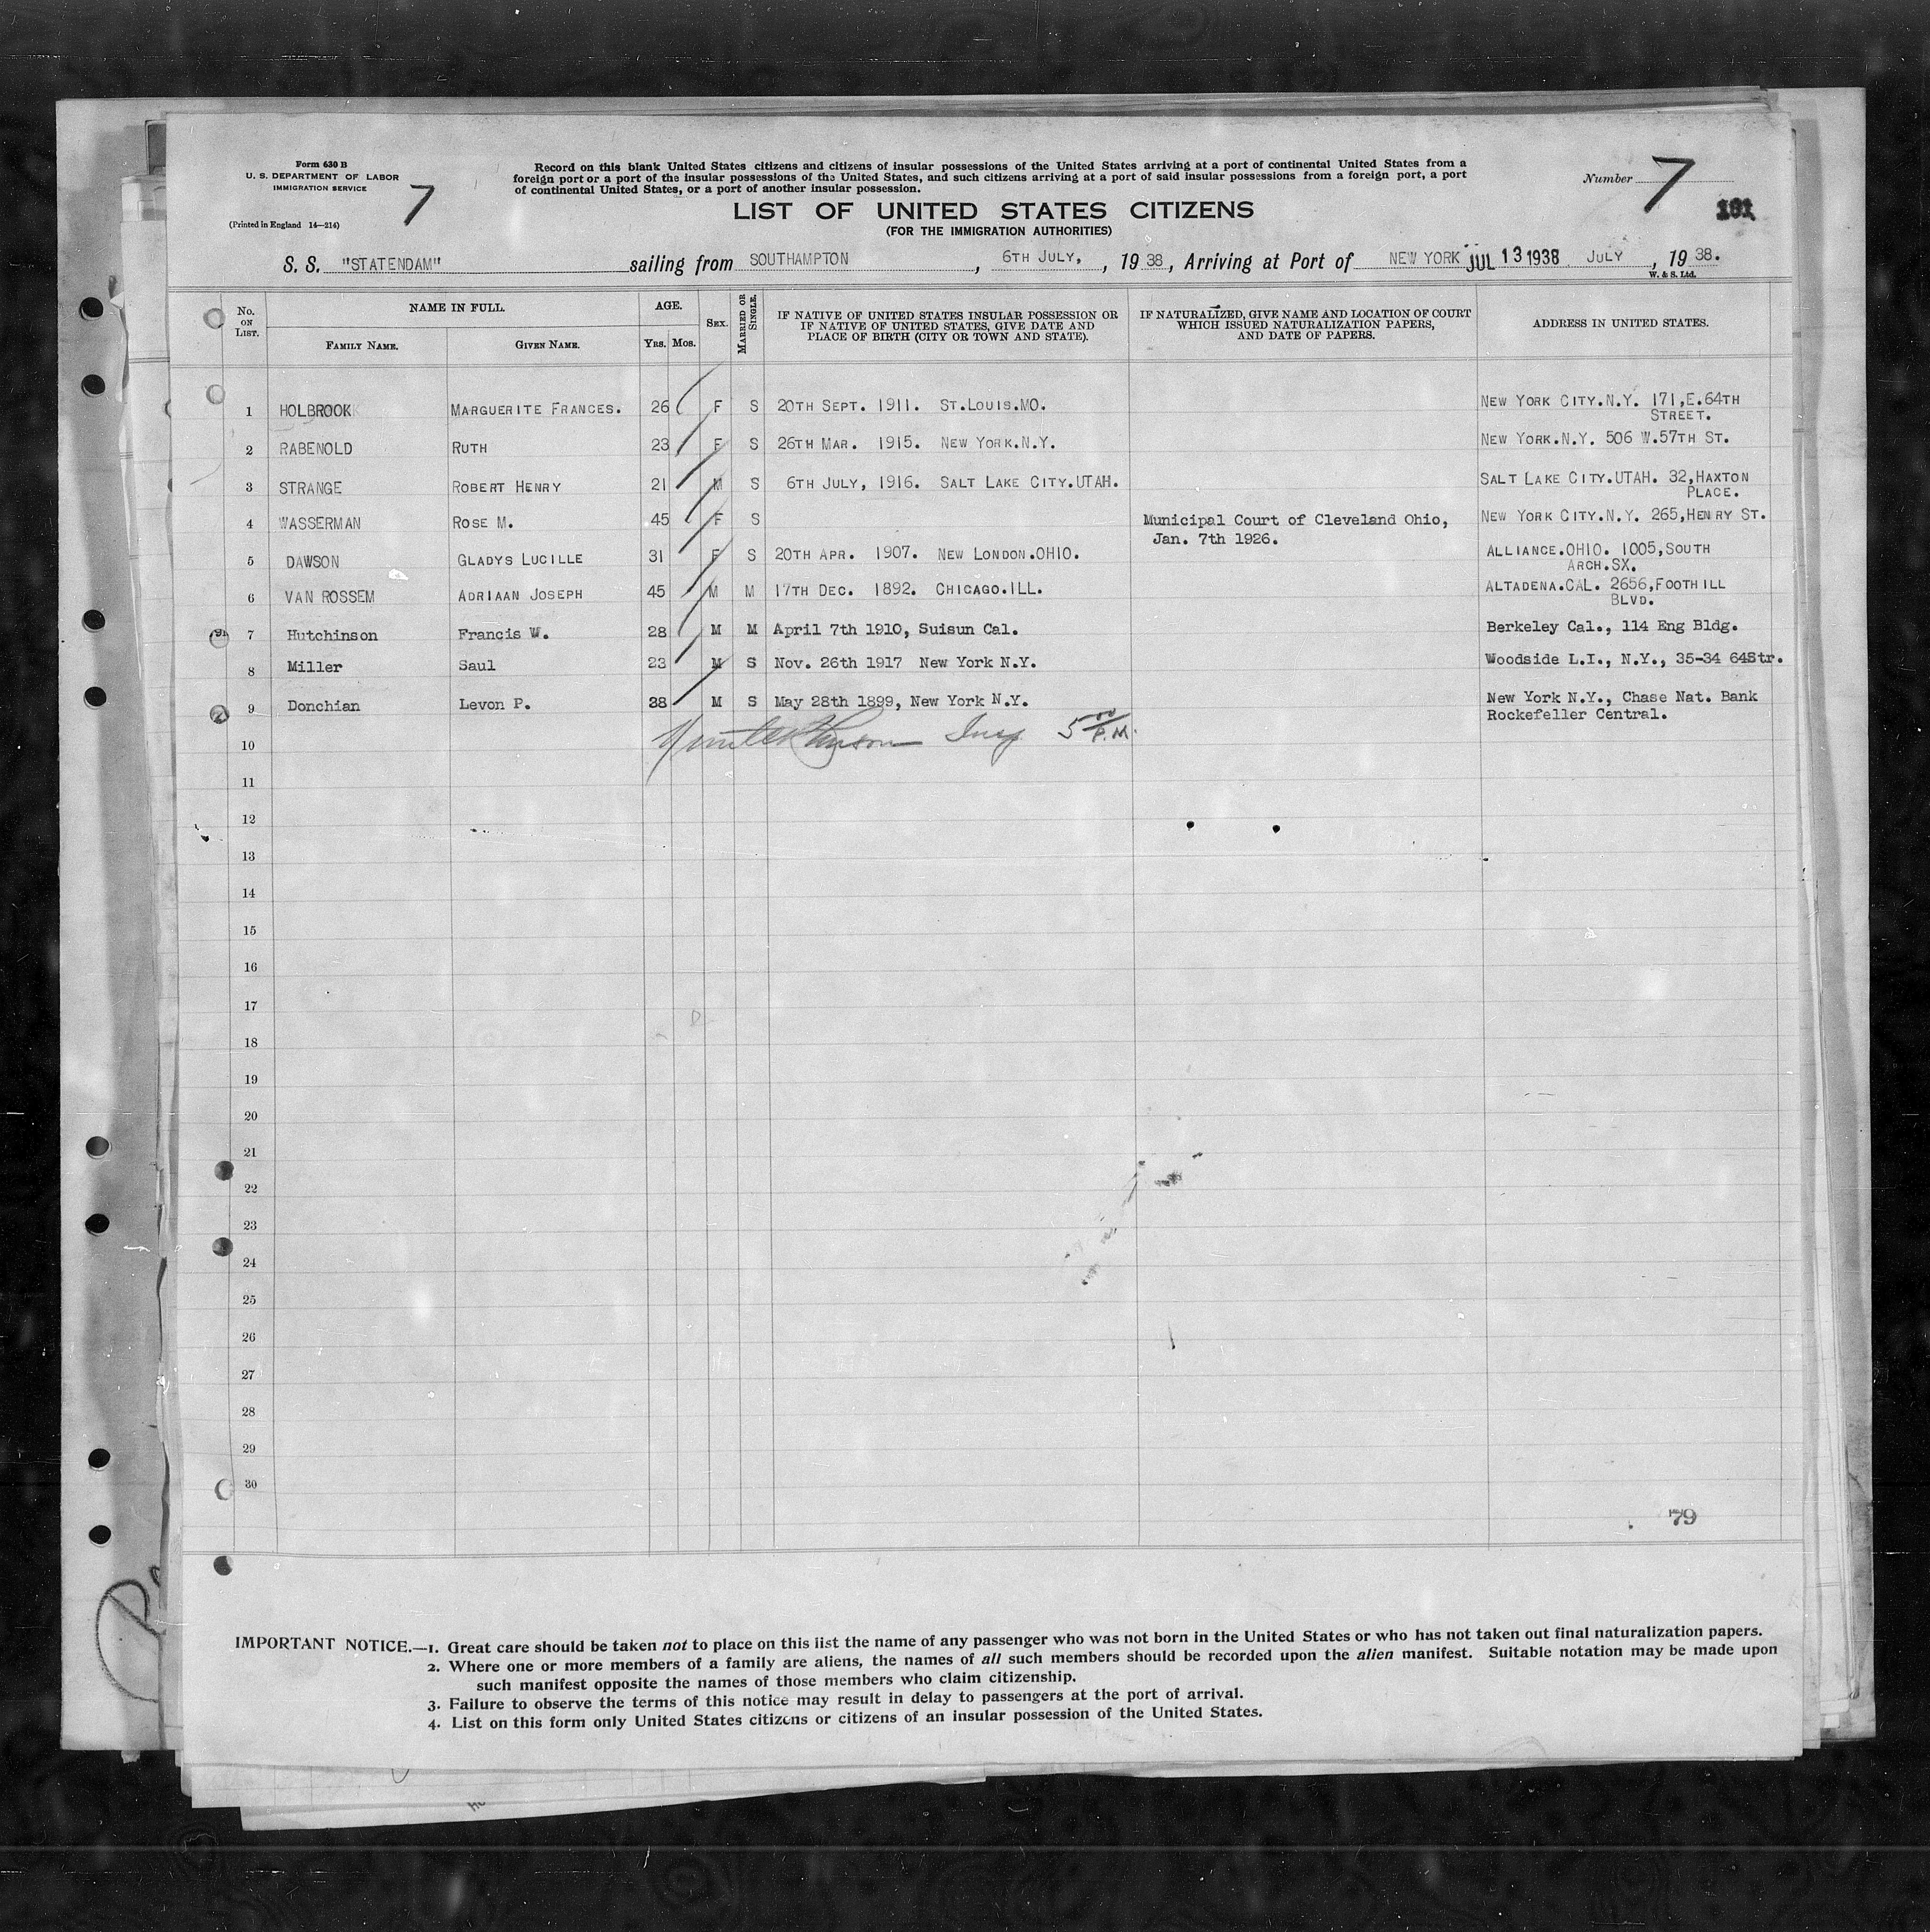 Form 630 B
U. S. DEPARTMENT OF LABOR
IMMIGRATION SERVICE
7
(Printed in England 14—214)
Record on this blank United States citizens and citizens of insular possessions of the United States arriving at a port of continental United States from a
foreign port or a port of the insular possessions of the United States, and such citizens arriving at a port of said insular possessions from a foreign port, a port
of continental United States, or a port of another insular possession.
Number 7
LIST OF UNITED STATES CITIZENS
(FOR THE IMMIGRATION AUTHORITIES)
S. S. "STATENDAM" sailing from SOUTHAMPTON, 6TH JULY, 1938, Arriving at Port of NEW YORK JUL 13 1938 JULY, 1938.
W. & S. Ltd.
No. ON LIST. NAME IN FULL. AGE. SEX. MARRIED OR SINGLE. IF NATIVE OF UNITED STATES INSULAR POSSESSION OR IF NATIVE OF UNITED STATES, GIVE DATE AND PLACE OF BIRTH (CITY OR TOWN AND STATE). IF NATURALIZED, GIVE NAME AND LOCATION OF COURT WHICH ISSUED NATURALIZATION PAPERS, AND DATE OF PAPERS. ADDRESS IN UNITED STATES.
FAMILY NAME. GIVEN NAME. YRS. MOS.
1 HOLBROOK MARGUERITE FRANCES. 26 F S 20TH SEPT. 1911. ST.LOUIS.MO. NEW YORK CITY.N.Y. 171,E.64TH
STREET.
2 RABENOLD RUTH 23 F S 26TH MAR. 1915. NEW YORK.N.Y. NEW YORK.N.Y. 506 W.57TH ST.
3 STRANGE ROBERT HENRY 21 M S 6TH JULY, 1916. SALT LAKE CITY.UTAH. SALT LAKE CITY.UTAH. 32,HAXTON
PLACE.
4 WASSERMAN ROSE M. 45 F S Municipal Court of Cleveland Ohio, NEW YORK CITY.N.Y. 265,HENRY ST.
Jan. 7th 1926.
5 DAWSON GLADYS LUCILLE 31 F S 20TH APR. 1907. NEW LONDON.OHIO. ALLIANCE.OHIO. 1005,SOUTH
ARCH.SX.
6 VAN ROSSEM ADRIAAN JOSEPH 45 M M 17TH DEC. 1892. CHICAGO.ILL. ALTADENA.CAL. 2656,FOOTHILL
BLVD.
7 Hutchinson Francis W. 28 M M April 7th 1910, Suisun Cal. Berkeley Cal., 114 Eng Bldg.
8 Miller Saul 23 M S Nov. 26th 1917 New York N.Y. Woodside L.I., N.Y., 35-34 64Str.
9 Donchian Levon P. 38 M S May 28th 1899, New York N.Y. New York N.Y., Chase Nat. Bank
Rockefeller Central.
10 Insp 5 00 P.M.
11
12
13
14
15
16
17
18
19
20
21
22
23
24
25
26
27
28
29
30
79
IMPORTANT NOTICE.—1. Great care should be taken not to place on this list the name of any passenger who was not born in the United States or who has not taken out final naturalization papers.
2. Where one or more members of a family are aliens, the names of all such members should be recorded upon the alien manifest. Suitable notation may be made upon
such manifest opposite the names of those members who claim citizenship.
3. Failure to observe the terms of this notice may result in delay to passengers at the port of arrival.
4. List on this form only United States citizens or citizens of an insular possession of the United States.